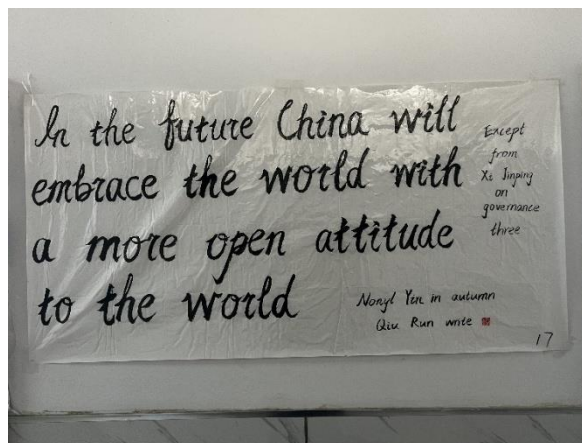 In the future China will
embrace the world with
a more open attitude
to the world
Except
from
Xi Jinping
on
governance
three
Yin in autumn
Qiu Run write
17